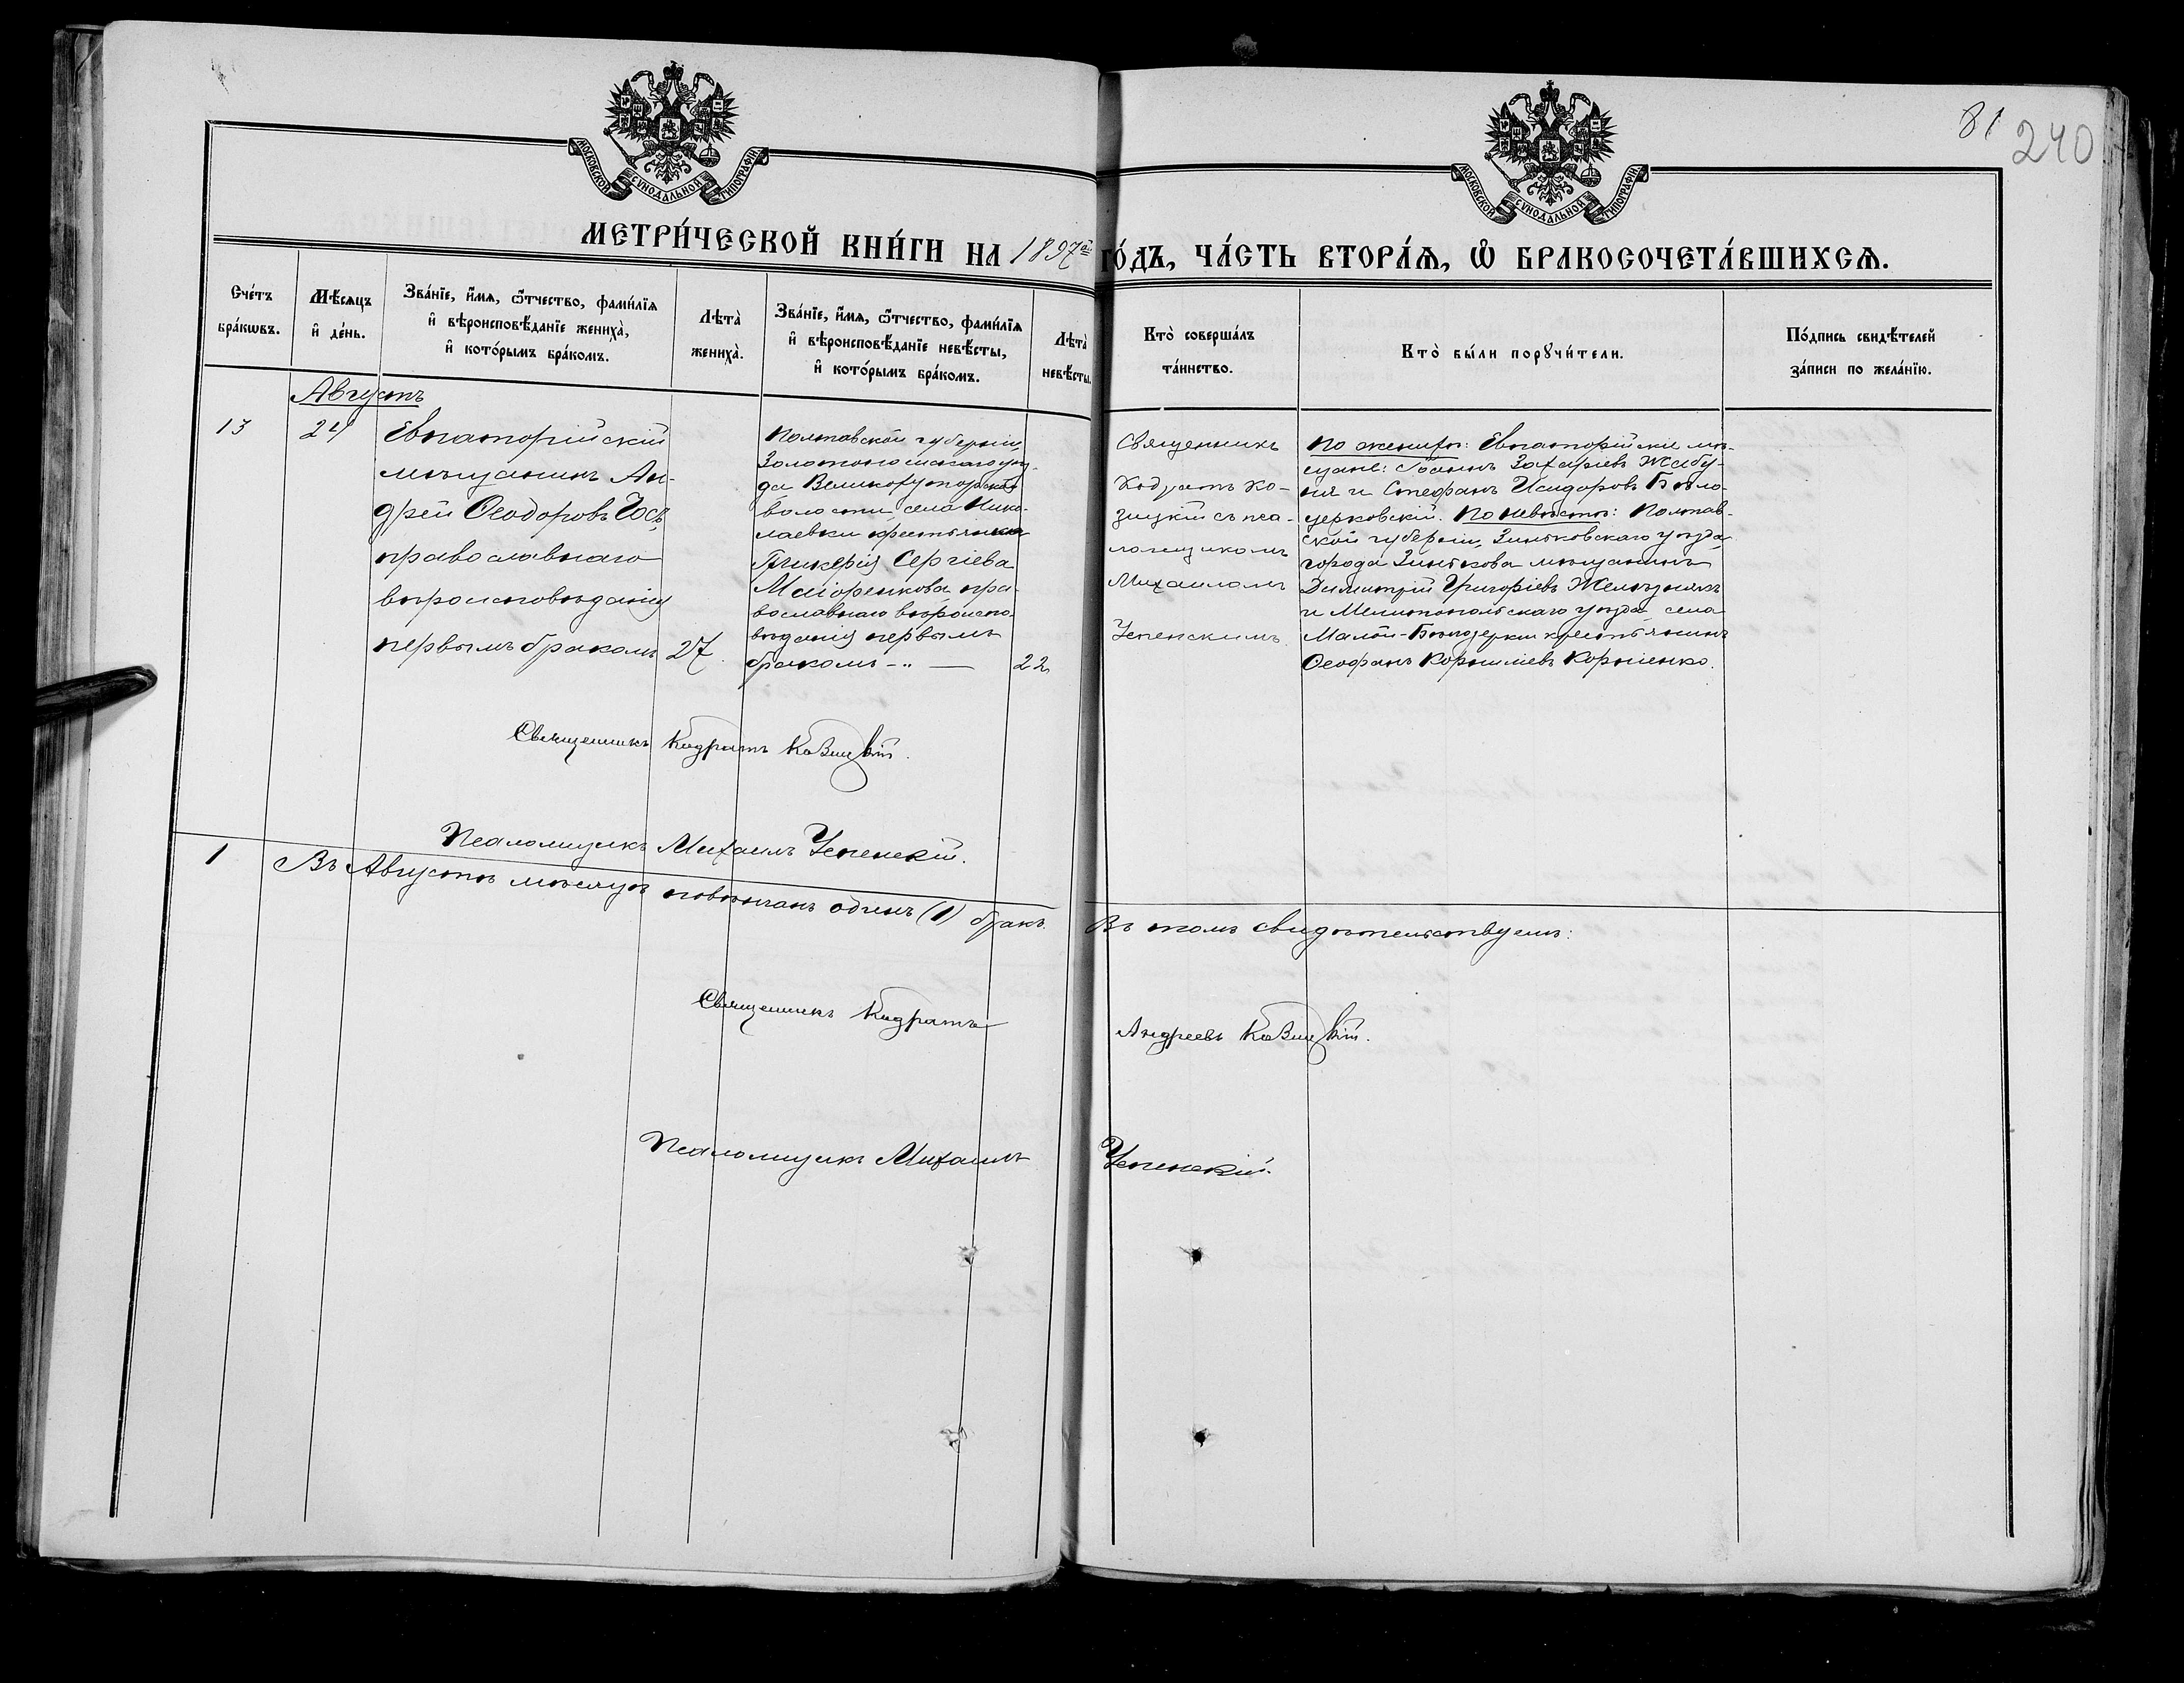 81
240
МОСКОВСКОЙ СѴНОДАЛЬНОЙ ТИПОГРАФІИ
МОСКОВСКОЙ СѴНОДАЛЬНОЙ ТИПОГРАФІИ
МЕТРИ́ЧЕСКОЙ КНИ́ГИ НА 1897ой ГО́ДЪ, ЧА́СТЬ ВТОРА́Ѧ, Ѽ БРАКОСОЧЕТА́ВШИХСѦ.
Сче́тъ
бра́кѡвъ.
Мѣ́сѧцъ
и҆ де́нь.
Зва́нїе, и҆́мѧ, ѻ҆́тчество, фами́лїѧ
и҆ вѣроисповѣ́данїе жениха̀,
и҆ кото́рымъ бра́комъ.
Лѣта̀
жениха̀.
Зва́нїе, и҆́мѧ, ѻ҆́тчество, фами́лїѧ
и҆ вѣроисповѣ́данїе невѣ́сты,
и҆ кото́рымъ бра́комъ.
Лѣта̀
невѣ́сты.
Кто̀ соверша́лъ
та́инство.
Кто̀ бы́ли порꙋчи́тели.
По́дпись свидѣ́телей
за́писи по жела́нїю.
Августъ
13
24
Евпаторійскій
мѣщанинъ Ан-
дрей Ѳеодоровъ Гось
православнаго
вѣроисповѣданія
первымъ бракомъ
27.
Полтавской губерніи,
Золотоношскаго уѣз-
да Великохуторской
волости, села Нико-
лаевки крестьянка
Гликерія Сергіева
Маіоренкова пра-
вославнаго вѣроиспо-
вѣданія первымъ
бракомъ -"-
22
Священникъ
Кодратъ Ко-
зицкій съ пса-
ломщикомъ
Михаиломъ
Успенскимъ
По женихѣ: Евпаторійскіе мѣ-
щане: Іоаннъ Захаріевъ Жабу-
ня и Стефанъ Исидоровъ Бѣло-
церковскій. По невѣстѣ: Полтав-
ской губерніи, Зиньковскаго уѣзда,
города Зинькова мѣщанинъ
Димитрій Григоріевъ Желѣзнякъ
и Мелитопольскаго уѣзда села
Малой-Бѣлозерки крестьянинъ
Ѳеофанъ Корниліевъ Корніенко.
Священникъ Кодратъ Козицкій.
Псаломщикъ Михаилъ Успенскій.
1
Въ Августѣ мѣсяцѣ повѣнчанъ одинъ (1) бракъ.
Въ томъ свидѣтельствуемъ:
Священникъ Кодратъ Андреевъ Козицкій.
Псаломщикъ Михаилъ Успенскій.